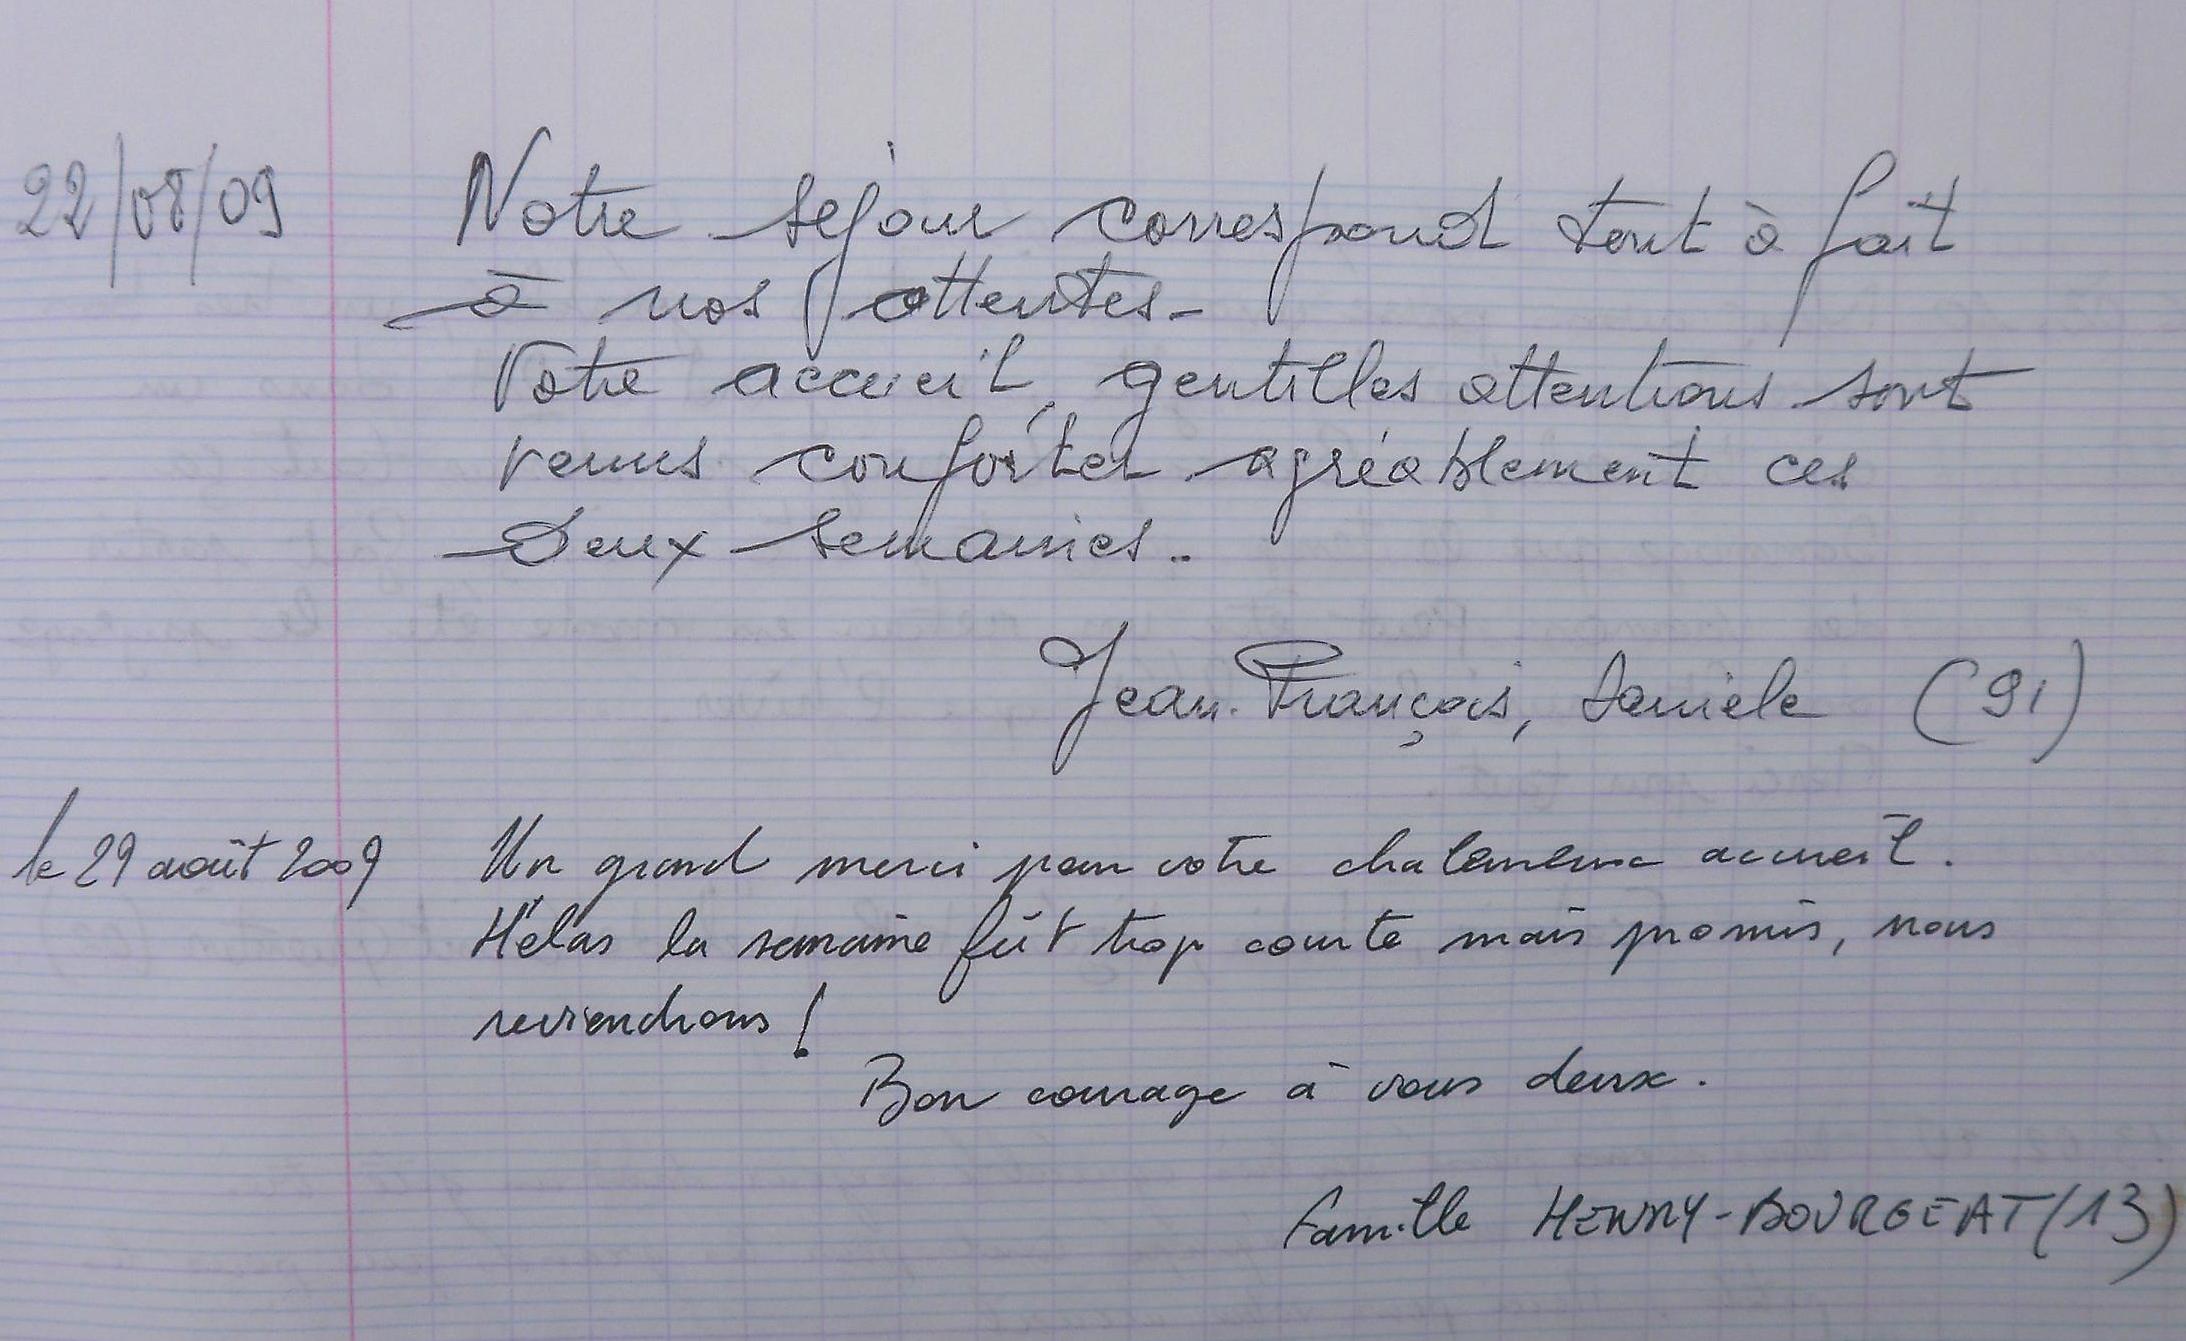 22/08/09 Notre séjour correspond tout à fait
à nos attentes.
Votre accueil, gentilles attentions sont
venus conforter agréablement ces
deux semaines..
Jean-François, Danièle (91)
le 29 août 2009 Un grand merci pour votre chaleureux accueil.
Hélas la semaine fût trop courte mais promis, nous
reviendrons !
Bon courage à vous deux.
Famille HENRY-BOURGEAT (13)